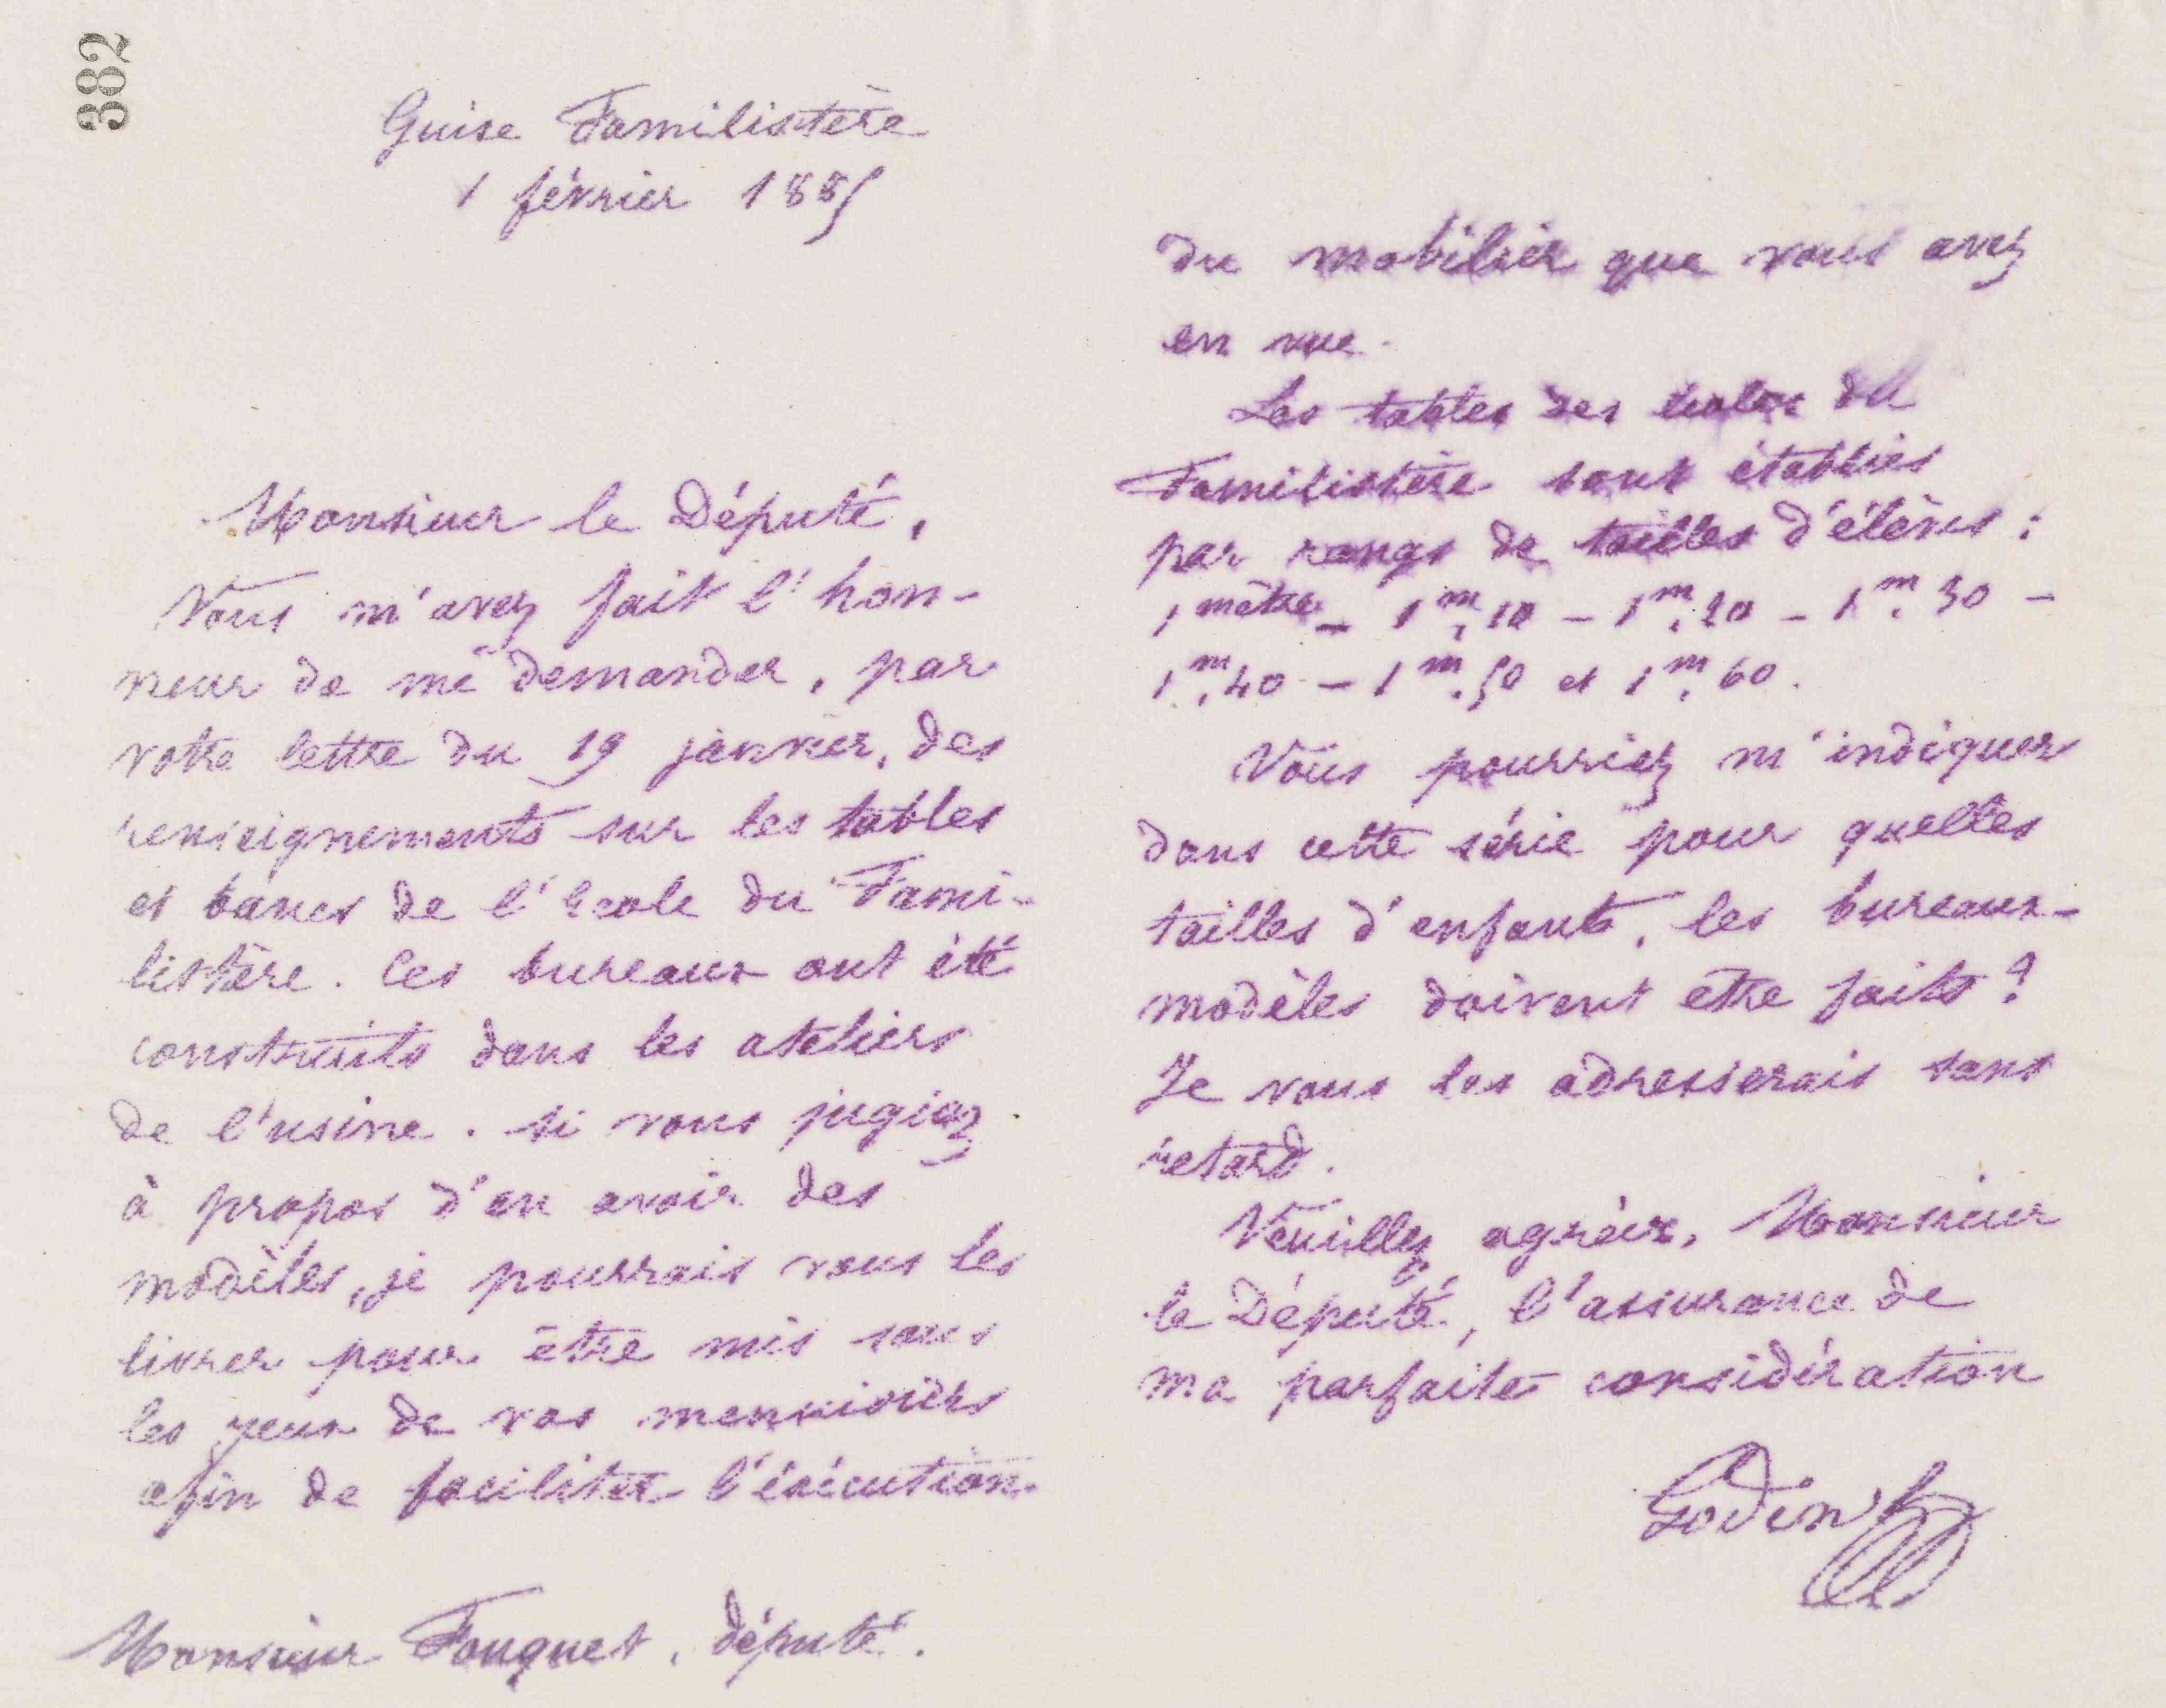 382
Guise Familistère
1 février 1885
Monsieur le Député,
Vous m'avez fait l'hon-
neur de me demander, par
votre lettre du 19 janvier, des
renseignements sur les tables
et bancs de l'école du Fami-
listère. Ces bureaux ont été
construits dans les ateliers
de l'usine. Si vous jugiez
à propos d'en avoir des
modèles, je pourrais vous les
livrer pour être mis sous
les yeux de vos menuisiers
afin de faciliter l'exécution
Monsieur Fouquet, député.
du mobilier que vous avez
en vue.
Les tables des écoles du
Familistère sont établies
par rangs de tailles d'élèves :
1 mètre – 1m,10 – 1m,20 – 1m,30 –
1m,40 – 1m,50 et 1m,60.
Vous pourriez m'indiquer
dans cette série pour quelles
tailles d'enfants, les bureaux-
modèles doivent être faits ?
Je vous les adresserais sans
retard.
Veuillez agréer, Monsieur
le Député, l'assurance de
ma parfaite considération
Godin